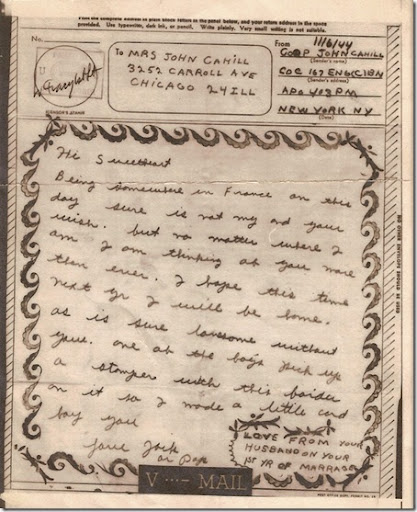 Print the complete address in plain block letters in the panel below, and your return address in the space
provided. Use typewriter, dark ink, or pencil. Write plainly. Very small writing is not suitable.
No.
To MRS JOHN CAHILL
3252 CARROLL AVE
CHICAGO 24 ILL
From 11/6/44
CORP JOHN CAHILL
(Sender's name)
CO C 167 ENG(C)BN
(Sender's address)
APO 403 PM
NEW YORK NY
(Date)
(CENSOR'S STAMP)
Hi Sweetheart
Being somewhere in France on this
day sure is not my and your
wish. but no matter where I
am I am thinking at you more
than ever. I hope this time
next yr I will be home.
as is sure lonesome without
you. one at the boys pick up
a stomper with this boider
on it so I made a little card
for you
Love Jack
or Pop
LOVE FROM YOUR
HUSBAND ON YOUR
1ST YR OF MARRAGE
V ···- MAIL